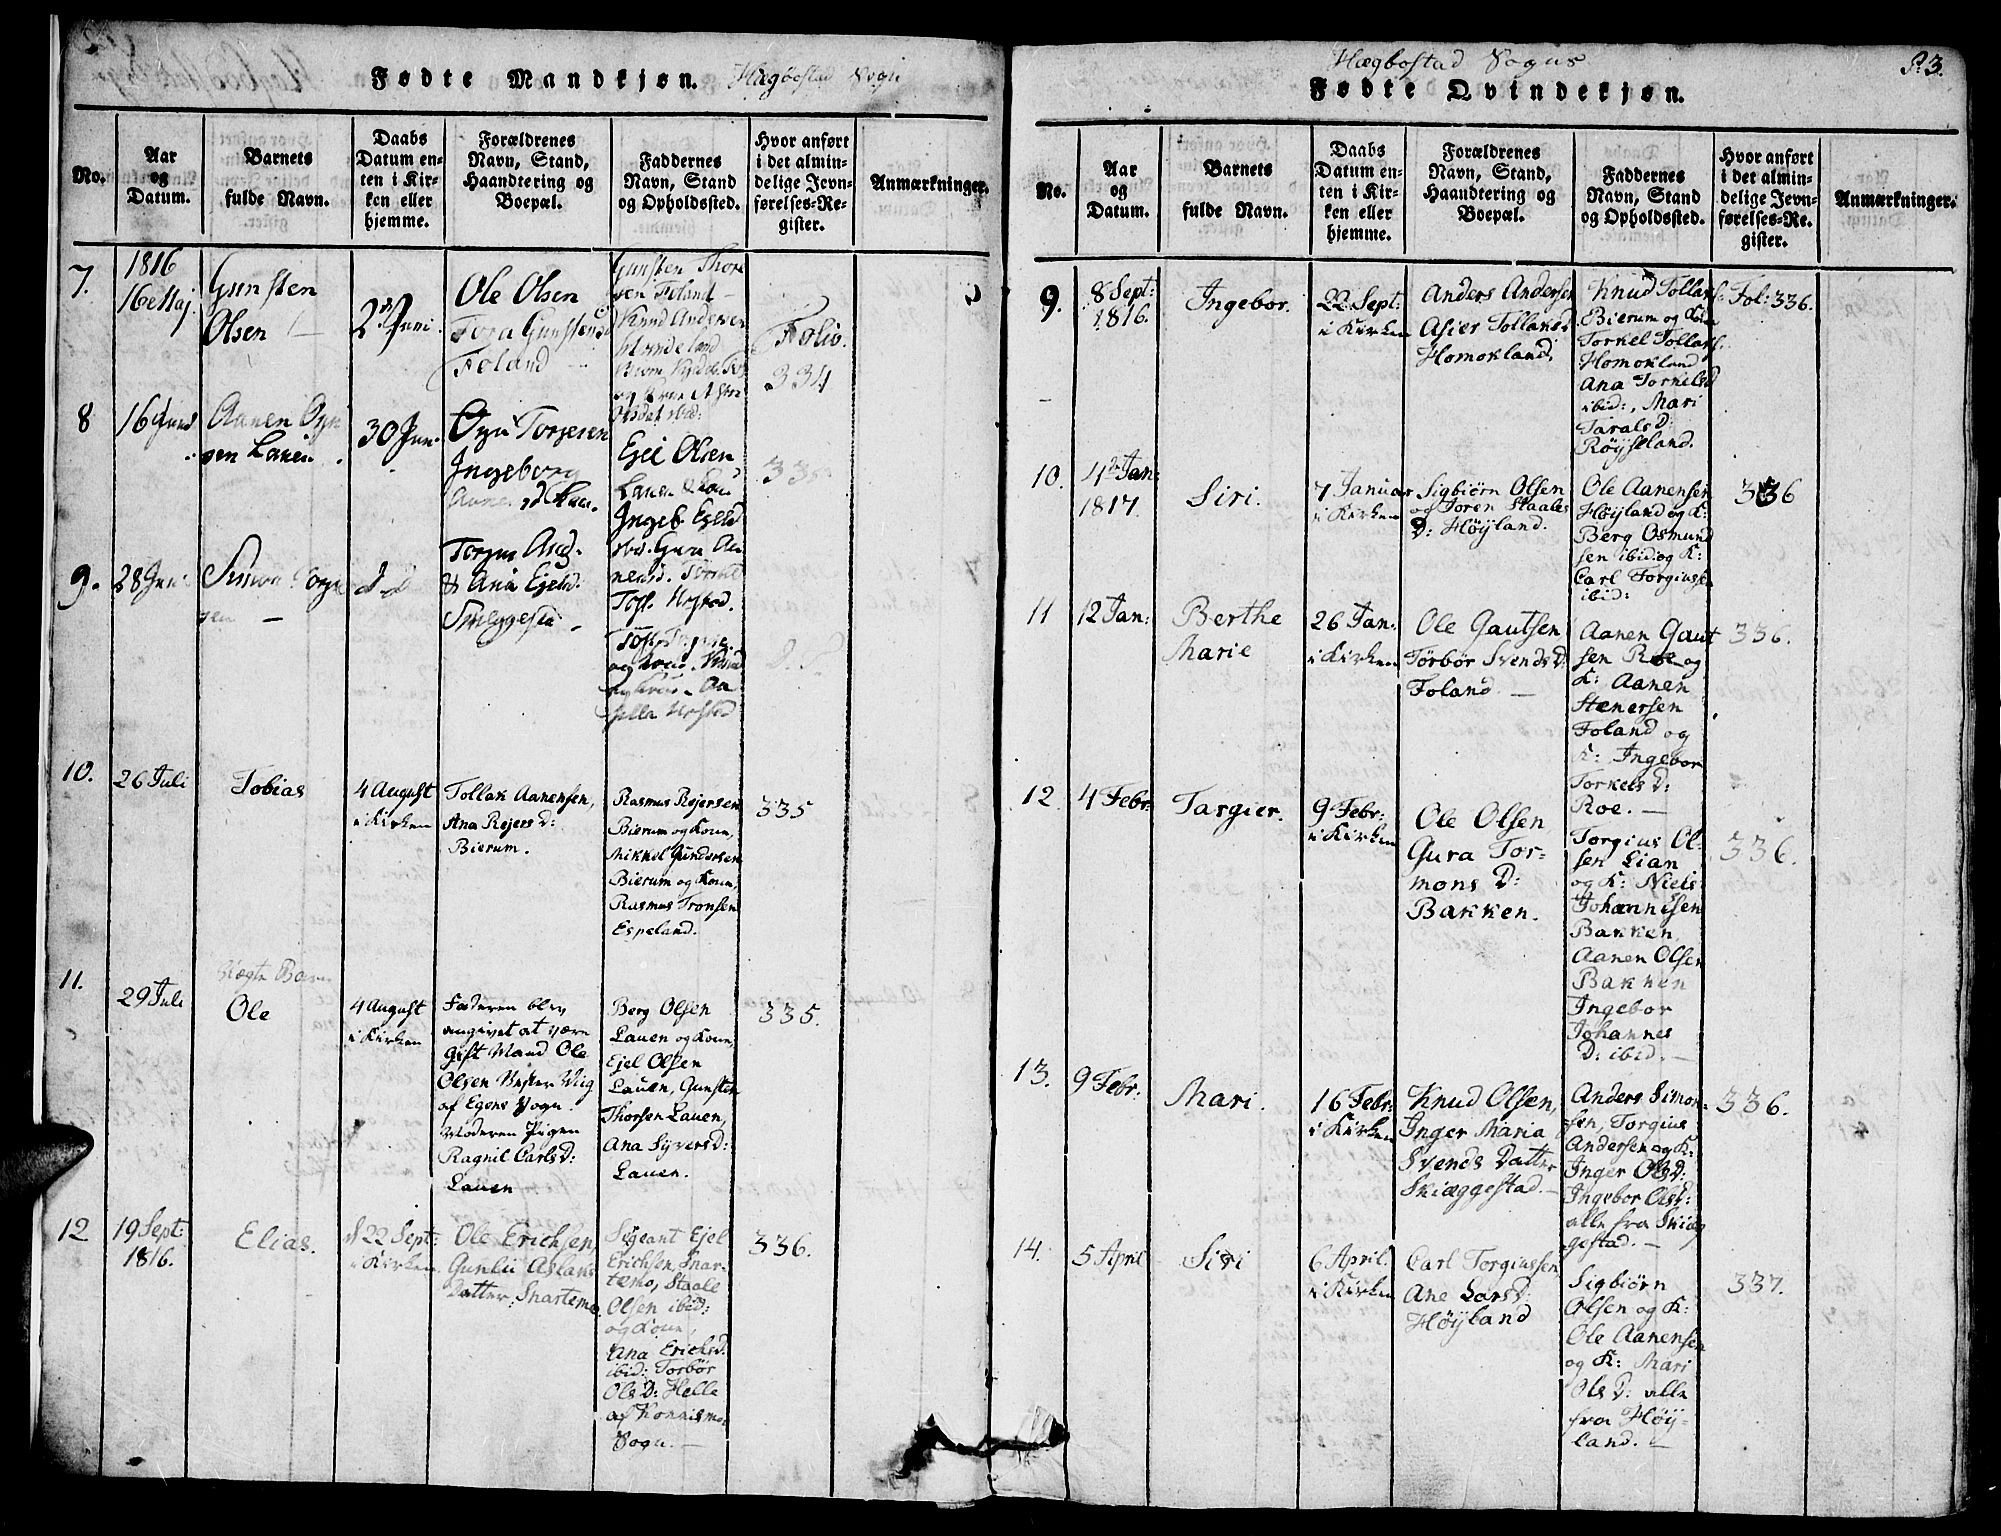 Fødte Mandkjøn. Hægbostad Sogn
No.
Aar
og
Datum.
Barnets
fulde Navn.
Daabs
Datum en-
ten i Kir-
ken eller
hjemme.
Forældrenes
Navn, Stand,
Haandtering og
Boepæl.
Faddernes
Navn, Stand
og Opholdssted.
Hvor anført
i det almin-
delige Jevn-
førelses-Re-
gister.
Anmærkninger.
7.
1816
16 Maj
Gunsten
Olsen
2 Juni
Ole Olsen
Tora Gunstensd
Foland
Gunsten Thor
sen Foland
Knud Andersen
Folio.
334
8
16 Juni
Aanen Ogn
sen Lauen
30 Jun.
Ogn Torjesen
Ingeborg
Ejel Olsen
Lauen & Kon
Ingeb. Ejelsd
335
9.
28 Juni
Simon
Torjus And.
& Ana Ejelsd:
10.
26 Juli
Tobias
4 August
i Kirken
Tollak Aanensen,
Ana Rejers D:
Bierum.
Rasmus Rejersen
Bierum og Kone,
Mikkel Gundersen
Bierum og Kone,
Rasmus Tronsen
Espeland.
335
11.
29 Juli
Uægte Barn
Ole
4 August
i Kirken
Faderen blev
angivet at være
Gift Mand Ole
Olsen
af Egens Sogn.
Moderen Pigen
Ragnil Carls D:
Lauen
Berg Olsen
Lauen og Kone,
Ejel Olsen
Lauen, Gunsten
Thorsen Lauen,
Ana Syvers D:
Lauen.
335.
12
19 Sept:
1816.
Elias.
d 22 Sept:
i Kirken
Ole Erichsen,
Gunlii Aslaks
Datter, Snartemo.
Sigeant Ejel
Erichsen, Snar-
temo, Staale
Olsen ibid:
og Kone,
Ana Erichsd.
ibid: Torbør
Ols D: Helle
af Konnismo
Sogn. —
336.
Hægbostad Sogns
Fødte Qvindekjøn.
83.
No.
Aar
og
Datum.
Barnets
fulde Navn.
Daabs
Datum en-
ten i Kir-
ken eller
hjemme.
Forældrenes
Navn, Stand,
Haandtering og
Boepæl.
Faddernes
Navn, Stand
og Opholdssted.
Hvor anført
i det almin-
delige Jevn-
førelses-Re-
gister.
Anmærkninger.
9.
8 Sept:
1816.
Ingebor.
22 Sept:
i Kirken
Anders Andersen
Asier Tollaksd
Homokland,
Knud Tollaks:
Bierum og Kone
Torkel Tollaks:
Homokland
Ana Torkelsd
ibid:, Mari
Tarals D:
Røysland.
Fol: 336.
10.
4de Jan:
1817.
Siri.
7 Januar
i Kirken
Sigbiørn Olsen
og Joren Staales
D: Høyland.
Ole Aanensen
Høyland og K:
Berg Osmund
sen ibid: og K:
Carl Torgiussen
ibid:
336
11
12 Jan:
Berthe
Marie
26 Jan.
i Kirken
Ole Gautsen
Torbør Svends D:
Foland. —
Aanen Gaut
sen Roe og
K: Aanen
Stenersen
Foland og
K: Ingebor
Torkels D:
Roe. —
336.
12
4 Febr:
Targier.
9 Febr:
i Kirken
Ole Olsen
Gura Tor-
mons D:
Bakken.
Torgius Ol-
sen Lian
og K: Niels
Johannesen
Bakken,
Aanen Olsen
Bakken
Ingebor
Johannes
D: ibid. —
336.
13.
9 Febr.
Mari.
16 Febr:
i Kirken
Knud Olsen,
Inger Maria
Svends Datter
Skiæggestad. —
Anders Simon-
sen, Torgius
Andersen og K:
Inger Ols D:
Ingebor Ols D:
alle fra Skiæg
gestad. —
336.
14.
5 April
Siri
6 April.
i Kirken
Carl Torgiussen,
Ane Lars D:
Høyland
Sigbiørn
Olsen og K:
Ole Aanensen
og K: Mari
Ols D: alle
fra Høy-
land. —
337.